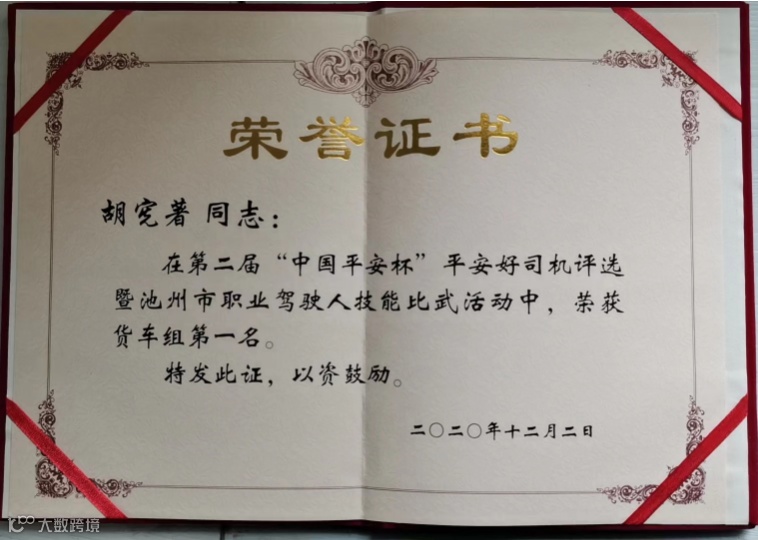 荣誉证书
胡宪著 同志：
在第二届“中国平安杯”平安好司机评选
暨池州市职业驾驶人技能比武活动中，荣获
货车组第一名。
特发此证，以资鼓励。
二〇二〇年十二月二日
大数跨境